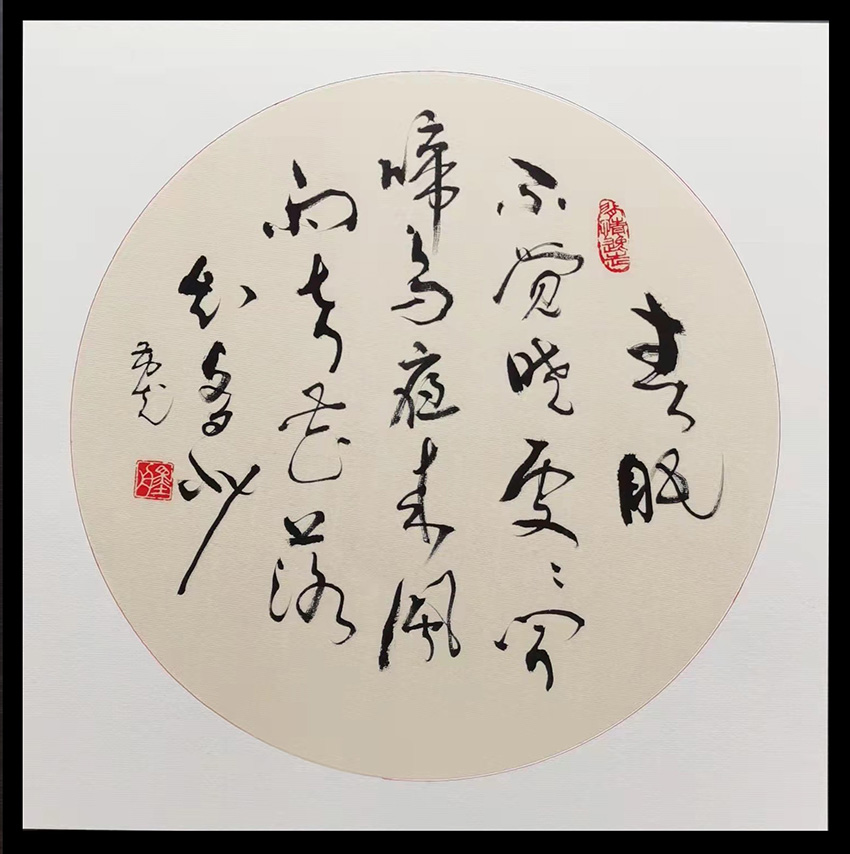 春眠
不觉晓处〻闻
啼鸟夜来风
雨声花落
知多少